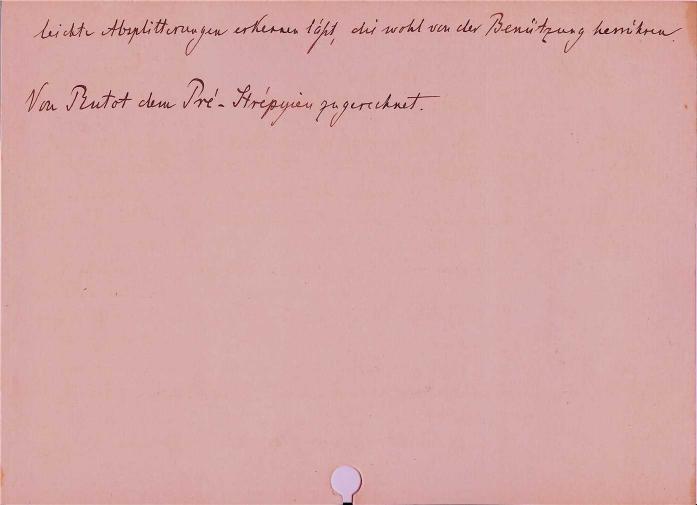 leichte Absplitterungen erkennen läßt, die wohl von der Benützung herrühren.
Von Rutot dem Pré-Strépyien zugerechnet.